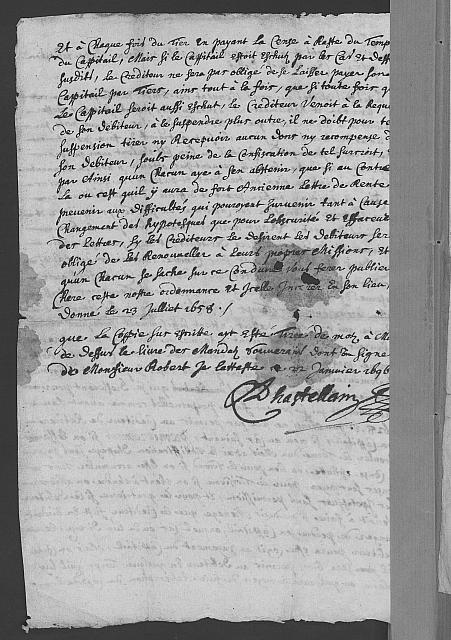 Et à Chaque fois du Tier En payant La Cense à Raste du Temp
du Cappitail, Mais si le Cappitail estoit Escheu par les Cas et dess
Susdit, le Créditeur ne sera pas obligé de se Laisser payer son
Cappitail par Tiers, ains tout à la fois, que si toute fois q
Le Cappitail seroit aussi Escheut, le Créditeur Venoit à la Reque
de son débiteur, à le suspendre plus outre, il ne doibt pour te
suspension tirer ny Recepvoir aucun dons ny recompense d
son débiteur, soubs peine de la Confiscation de tel surcroit,
par Ainsi qu'un Chacun aye à s'en abstenir, que si au Contra
là ou c'est quil y aura de fort Ancienne Lettre de Rente
prevenir aux difficultés qui pouroyent survenir tant à Cause
Changement des hypotesques que pour Lobscurité et Effaceure
des Lettres, sy les Créditeurs le desirent les debiteurs ser
obligé de les Renouveller à Leurs propres Missions, Et
quun Chacun se sache sur ce Conduire Vous ferez publier
ceste nostre ordonnance Et Icelle Inserer En son lieu,
donné le 23 Julliet 1658 ./
que la Coppie sus escritte ayt Esté Tirée de mot à M
de dessus le livre des Mandats souverains dont En signé
de Monsieur Robert Je Latteste ce 22 Janvier 1696
Chastellain